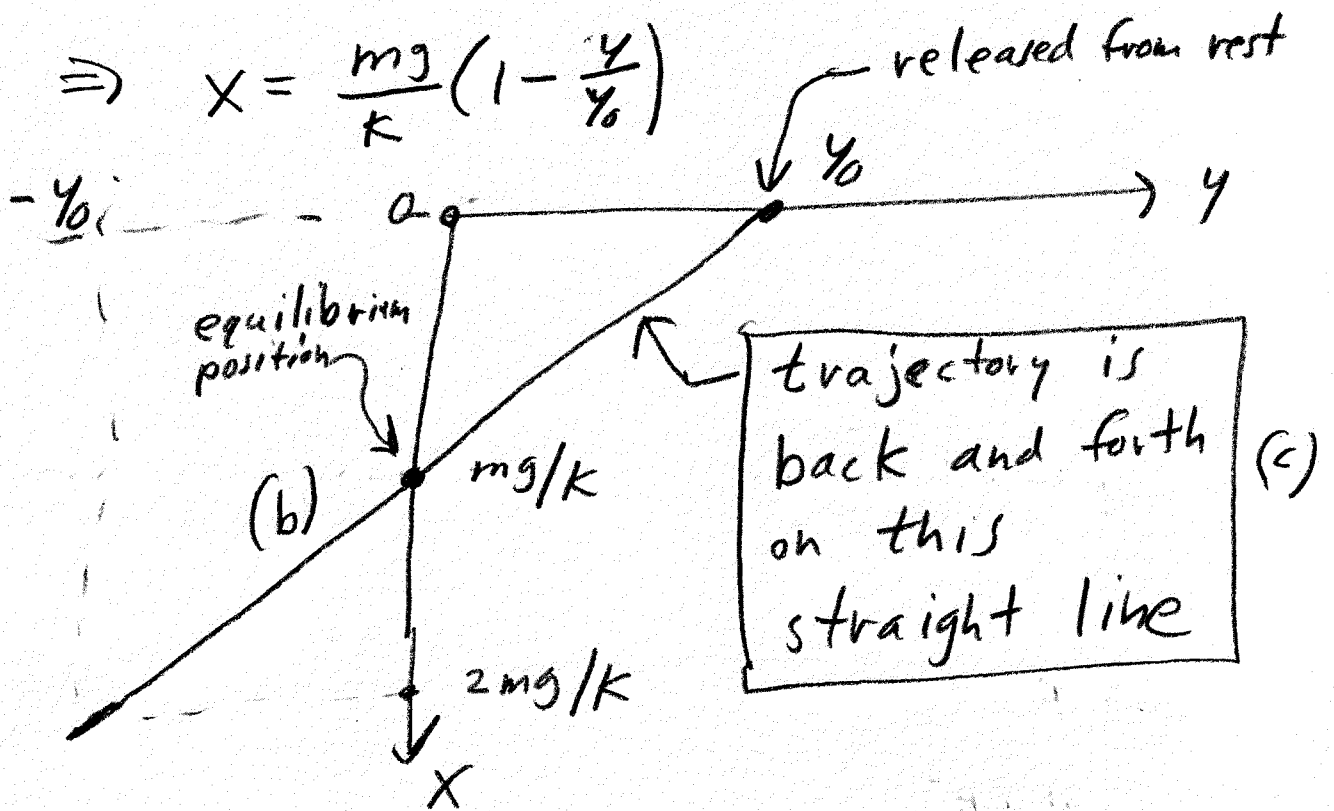 ⇒ x = mg/k (1 - y/y₀)
released from rest
-y₀
0
y₀
y
equilibrium
position
mg/k
(b)
trajectory is
back and forth
on this
straight line
(c)
2mg/k
x